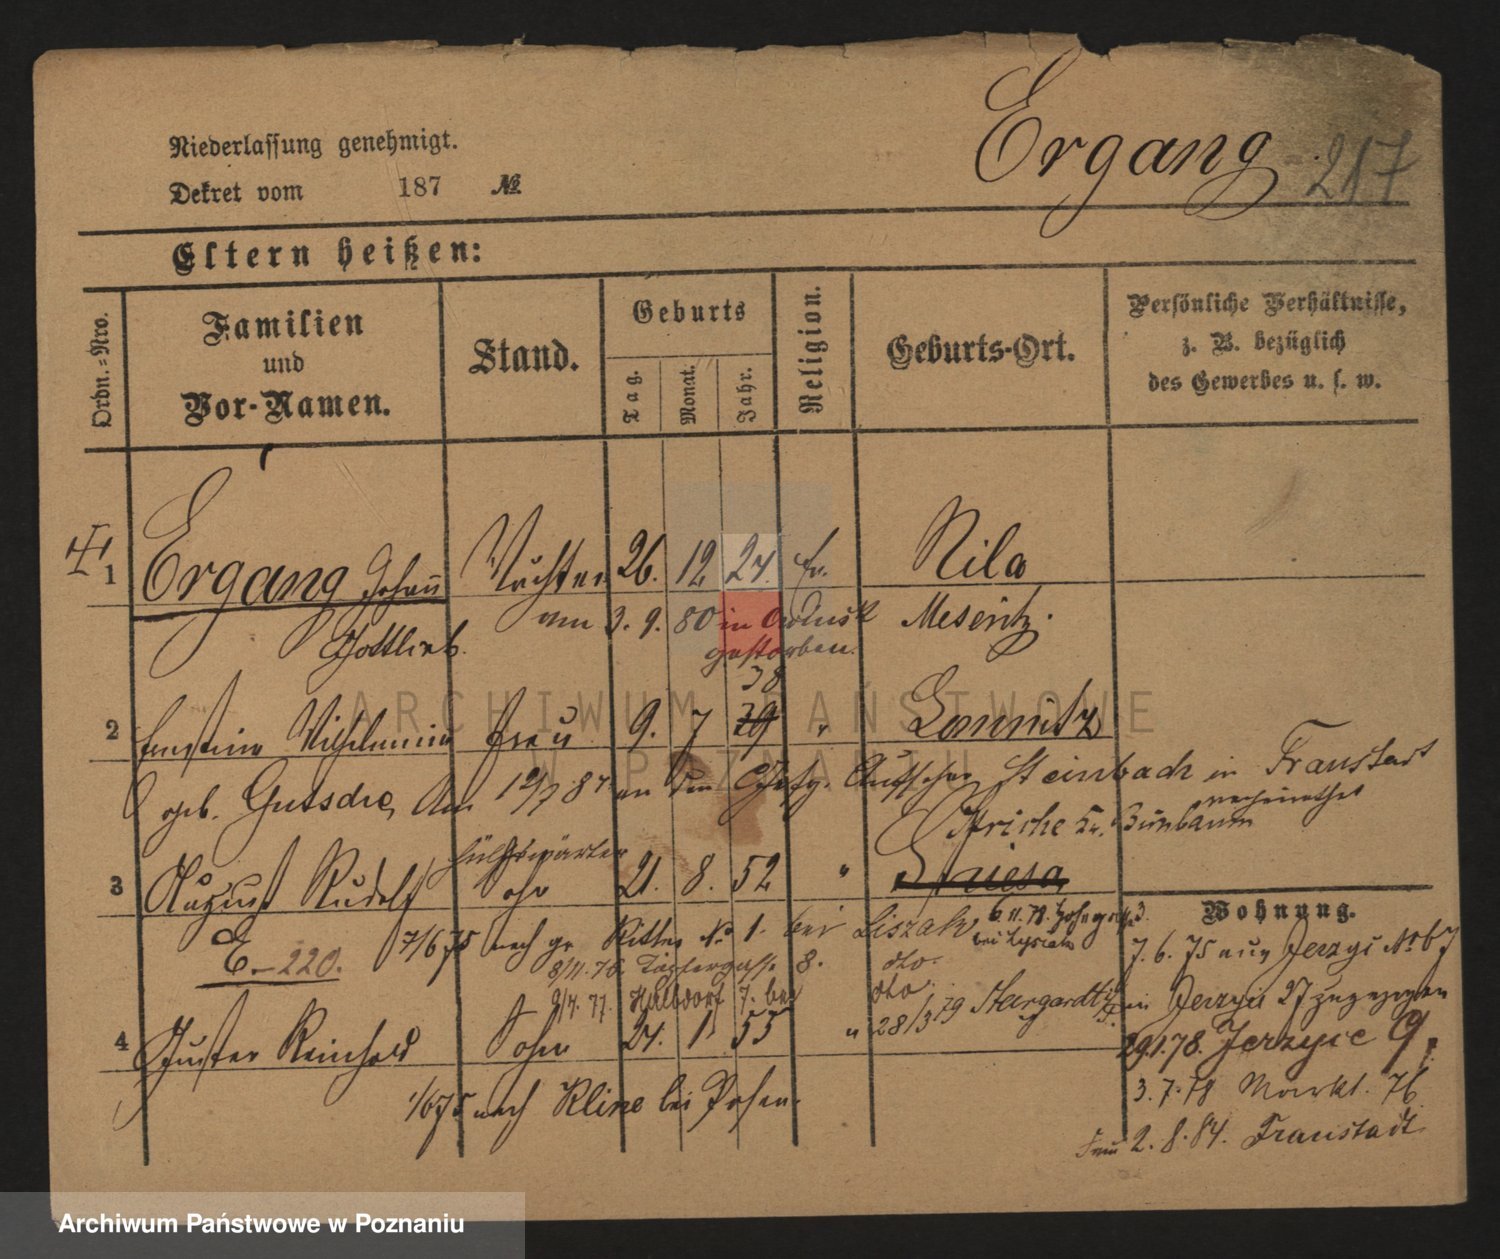 Ergang 217
Niederlassung genehmigt.
Dekret vom 187 №
Eltern heißen:
Ordn.-Nro.
Familien und Vor-Namen.
Stand.
Geburts
Tag.
Monat.
Jahr.
Religion.
Geburts-Ort.
Persönliche Verhältnisse, z. B. bezüglich des Gewerbes u. s. w.
1 Ergang Johann Wächter 26. 12 27. ev. Nila
Gottlieb. am 3. 9. 80 in gestorben. Meseritz.
38
2 Ernstine Wilhelmine Frau 9. 7 39 " Lomnitz
geb. Gutsche, Am 12/7 87 an den Gefg. Aufseher Steinbach in Fraustadt
verheirathet
Striche Kr. Birnbaum
Hülfswärter
3 August Rudolf Sohn 21. 8. 52 " Griesa
E.-220.
7/6 75 nach gr Ritter № 1. bei Liszak 6.11.78
8/11. 76. 8. dto.
9/4. 77. Halbdorf 7. bei dto.
28/3 79 Stargardt
4 Gustav Reinhold Sohn 24. 1 55 "
1/6 75 nach Kline bei Posen.
Wohnung.
7. 6. 75 aus Jerzyce № 67
in Jerzyce 27 zugezogen
29.1.78. Jerzyce 9.
3. 7. 78 Markt. 76
Frau 2. 8. 84. Fraustadt
ARCHIWUM PAŃSTWOWE
W POZNANIU
Archiwum Państwowe w Poznaniu